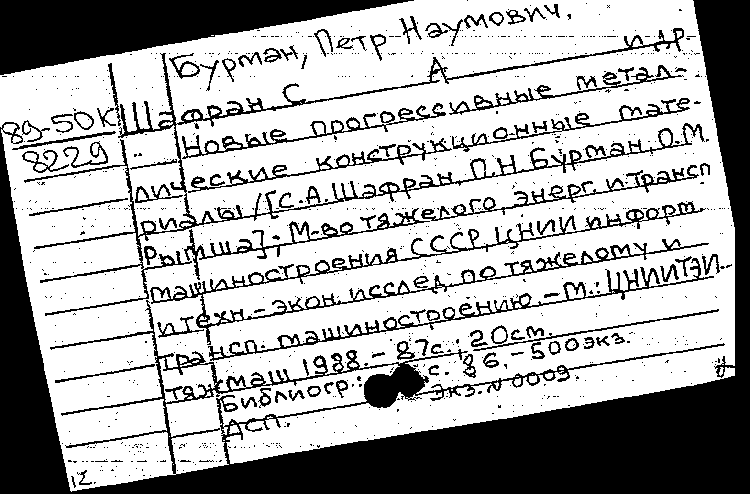 Бурман, Петр Наумович,
89-50К Шафран, С А и др.
8229 Новые прогрессивные метал-
лические конструкционные мате-
риалы / [С.А.Шафран, П.Н.Бурман, О.М.
Рымша]; М-во тяжелого, энерг. и трансп
машиностроения СССР, ЦНИИ информ.
и техн.-экон. исслед. по тяжелому и
трансп. машиностроению. - М.: ЦНИИТЭИ-
тяжмаш, 1988. - 87с.; 20см.
Библиогр.: с. 86. - 500экз.
ДСП. Экз. N 0009.